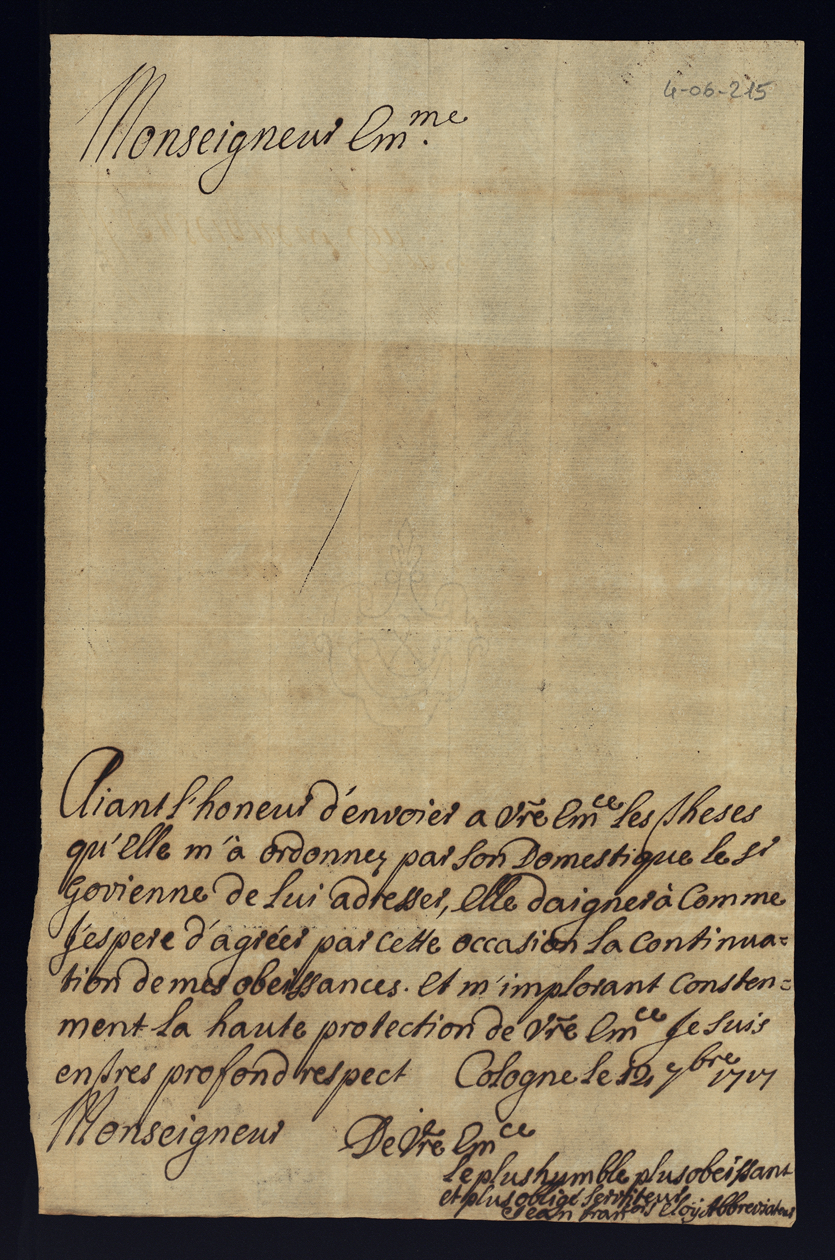 4-06-215
Monseigneur Em.me
Aiant l'honeur d'envoier a Vre Emce les theses
qu'Elle m'à ordonnez par son Domestique le Sr
Govienne de lui adresser, Elle daignerà Comme
J'espere d'agréer par cette occasion la Continua=
tion de mes obeissances. Et m'implorant Consten=
ment la haute protection de Vre Emce Je suis
en tres profond respect Cologne le 12 7bre 1717
Monseigneur De Vre Emce
le plus humble plus obeissant
et plus obligé serviteur
Jean Francois Eloÿ Abbreviateur